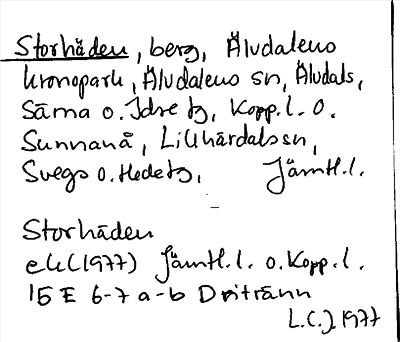 Storhäden, berg, Älvdalens
kronopark, Älvdalens sn, Älvdals,
Särna o. Idre tg, Kopp.l. o.
Sunnanå, Lillhärdals sn,
Svegs o. Hede tg, Jämtl.l.
Storhäden
ek (1977) Jämtl.l. o. Kopp.l.
15 E 6-7 a-b Dritrånn
L.C.J. 1977